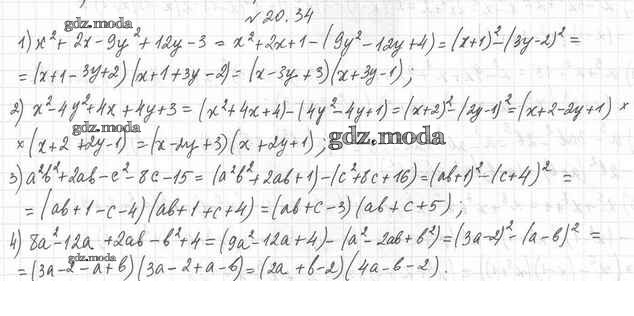 № 20.34
gdz.moda
1) x² + 2x - 9y² + 12y - 3 = x² + 2x + 1 - (9y² - 12y + 4) = (x+1)² - (3y-2)² =
= (x+1 - 3y+2)(x+1+3y-2) = (x-3y+3)(x+3y-1);
2) x² - 4y² + 4x + 4y + 3 = (x² + 4x + 4) - (4y² - 4y + 1) = (x+2)² - (2y-1)² = (x+2-2y+1) ×
gdz.moda
× (x+2+2y-1) = (x-2y+3)(x+2y+1);
gdz.moda
3) a²b² + 2ab - c² - 8c - 15 = (a²b² + 2ab + 1) - (c² + 8c + 16) = (ab+1)² - (c+4)² =
= (ab+1-c-4)(ab+1+c+4) = (ab+c-3)(ab+c+5);
4) 8a² - 12a + 2ab - b² + 4 = (9a² - 12a + 4) - (a² - 2ab + b²) = (3a-2)² - (a-b)² =
gdz.moda
= (3a-2-a+b)(3a-2+a-b) = (2a+b-2)(4a-b-2).